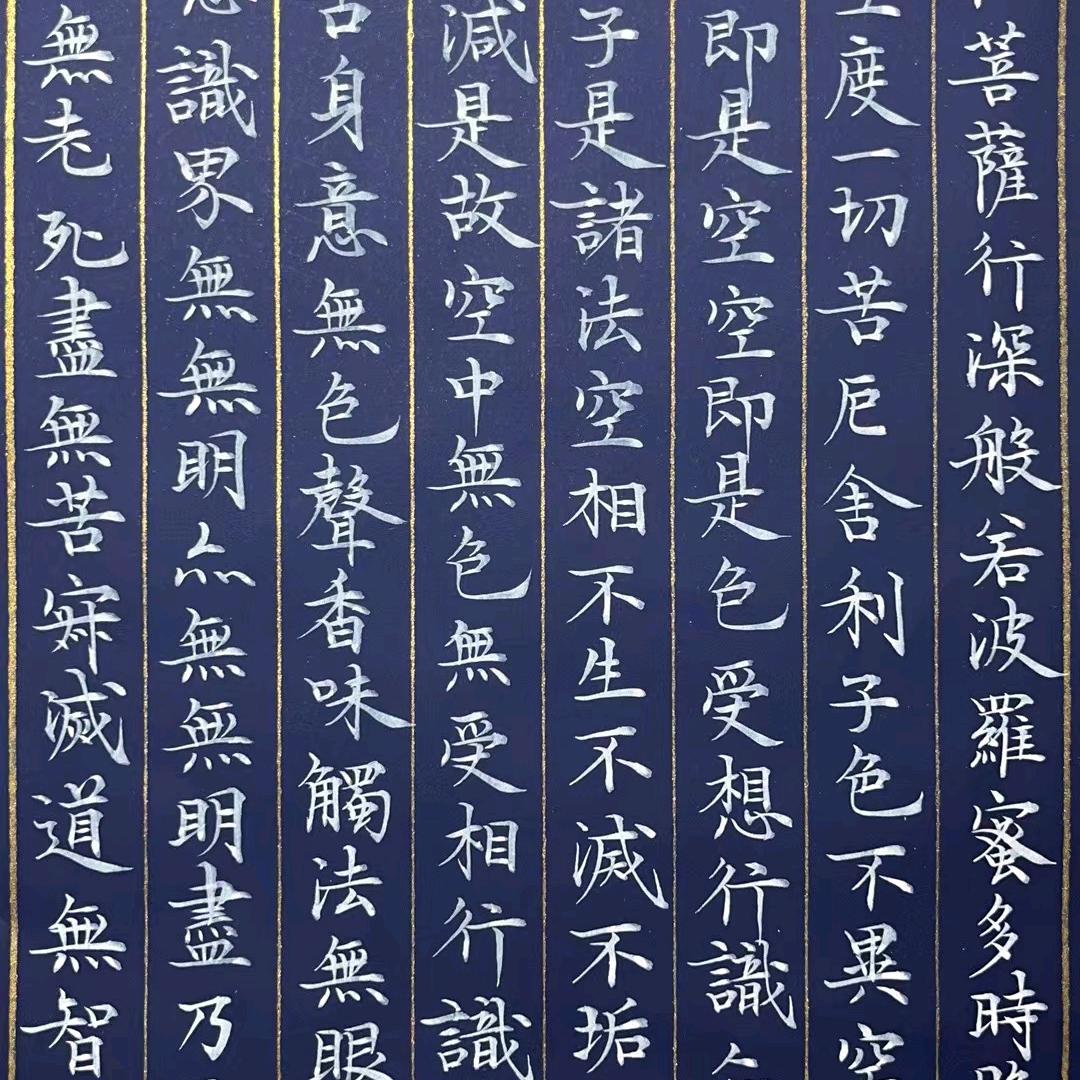 菩薩行深般若波羅蜜多時
度一切苦厄舍利子色不異空
即是空空即是色受想行識
子是諸法空相不生不滅不垢
減是故空中無色無受相行識
舌身意無色聲香味觸法無眼
識界無無明亦無無明盡乃
無老死盡無苦寂滅道無智